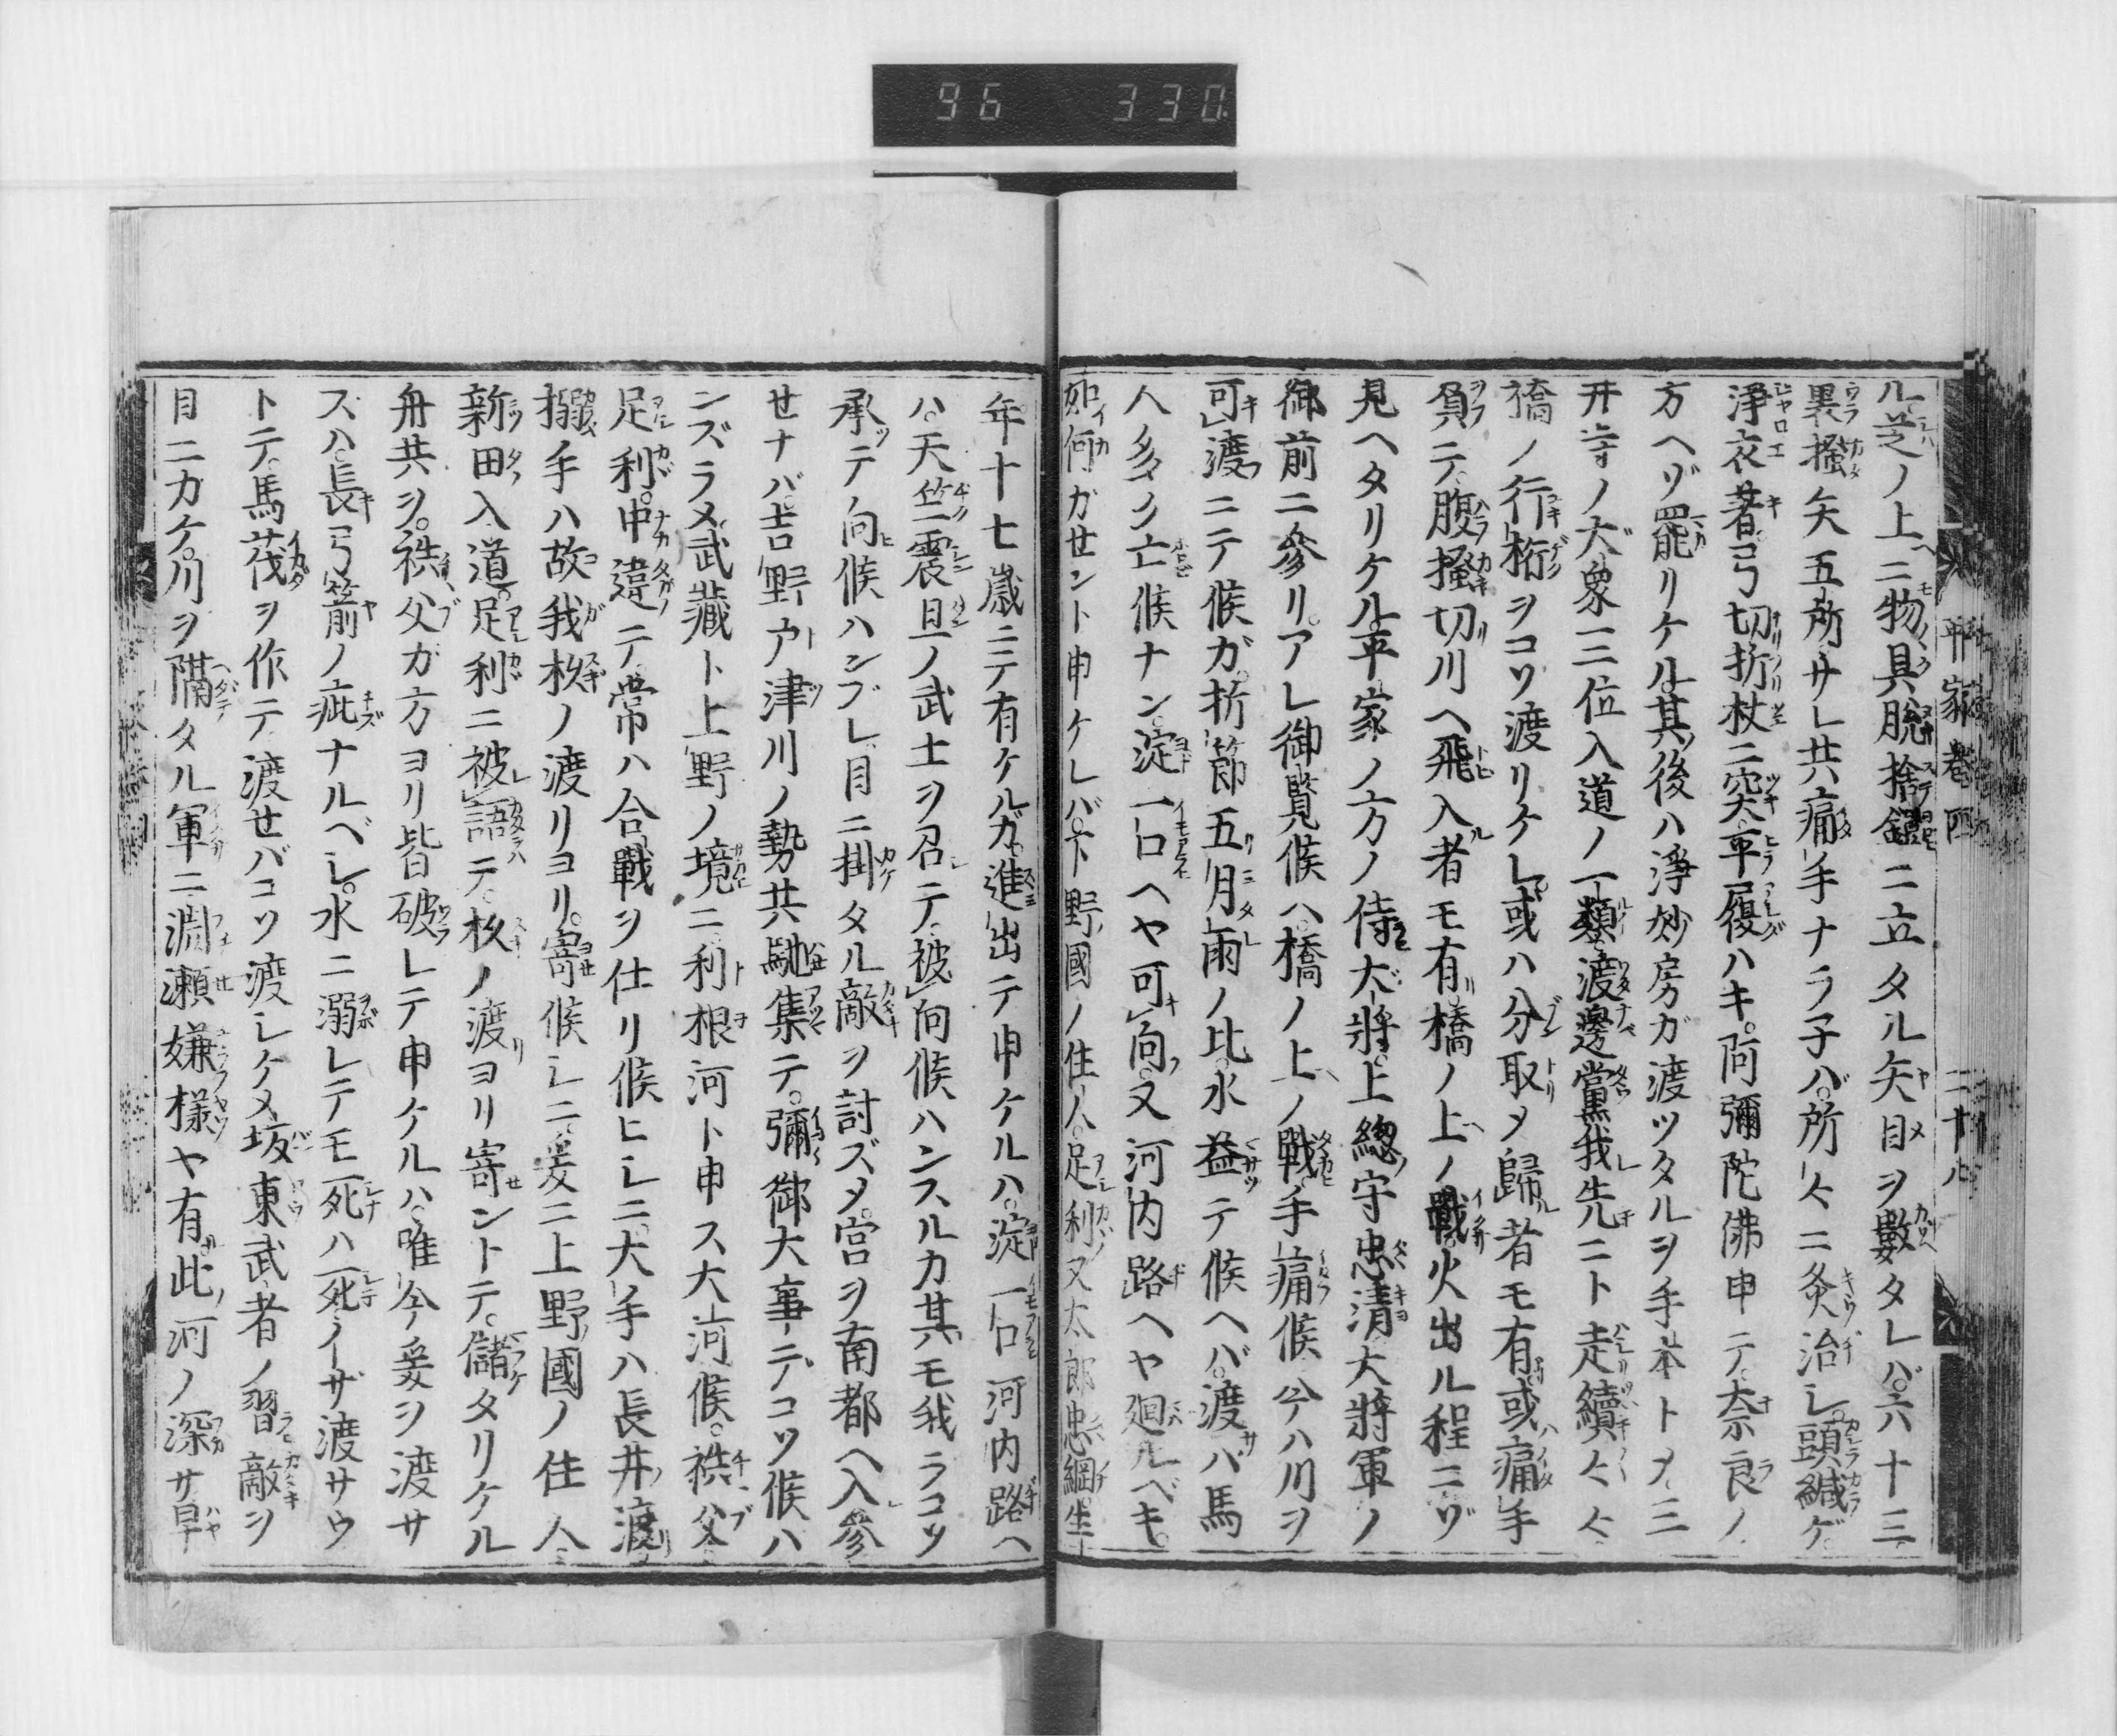 96 330
平家卷四 二十八
ル芝ノ上ニ物具脱捨鎧ニ立タル矢目ヲ數タレバ六十三
裏搔矢五所サレ共痛手ナラ子バ所々ニ灸治シ頭緘ゲ
淨衣著弓切折杖ニ突平履ハキ阿彌陀佛申テ奈良ノ
方ヘゾ罷リケル其後ハ淨妙房ガ渡ツタルヲ手本トメ三
井寺ノ大衆三位入道ノ一類渡邊黨我先ニト走續々々
橋ノ行桁ヲコソ渡リケレ或ハ分取メ歸者モ有或痛手
負テ腹搔切川ヘ飛入者モ有橋ノ上ノ戰火出ル程ニゾ
見ヘタリケル平家ノ方ノ侍大將上總守忠清大將軍ノ
御前ニ參リアレ御覽候ヘ橋ノ上ノ戰手痛候今ハ川ヲ
可渡ニテ候ガ折節五月雨ノ比水益テ候ヘバ渡サハ馬
人多ク亡候ナン淀一口ヘヤ可向又河内路ヘヤ廻ルベキ
如何ガセント申ケレバ下野國ノ住人足利又太郎忠綱生
年十七歳ニテ有ケルガ進出テ申ケルハ淀一口河内路ヘ
ハ天竺震旦ノ武士ヲ召テ被向候ハンスルカ其モ我ラコソ
承テ向候ハンズレ目ニ掛タル敵ヲ討ズメ宮ヲ南都ヘ入參
セナバ吉野戸津川ノ勢共馳集テ彌御大事ニテコソ候ハ
ンズラメ武藏ト上野ノ境ニ利根河ト申ス大河候秩父
足利中違テ常ハ合戰ヲ仕リ候ヒシニ大手ハ長井渡
搦手ハ故我杉ノ渡リヨリ寄候シニ爰ニ上野國ノ住人
新田入道足利ニ被語テ杉ノ渡ヨリ寄ントテ儲タリケル
舟共ヲ秩父ガ方ヨリ皆破レテ申ケルハ唯今爰ヲ渡サ
スハ長弓箭ノ疵ナルベシ水ニ溺レテモ死ハ死イザ渡サウ
トテ馬筏ヲ作テ渡セバコソ渡シケメ坂東武者ノ習敵ヲ
目ニカケ川ヲ隔タル軍ニ淵瀬嫌樣ヤ有此河ノ深サ早